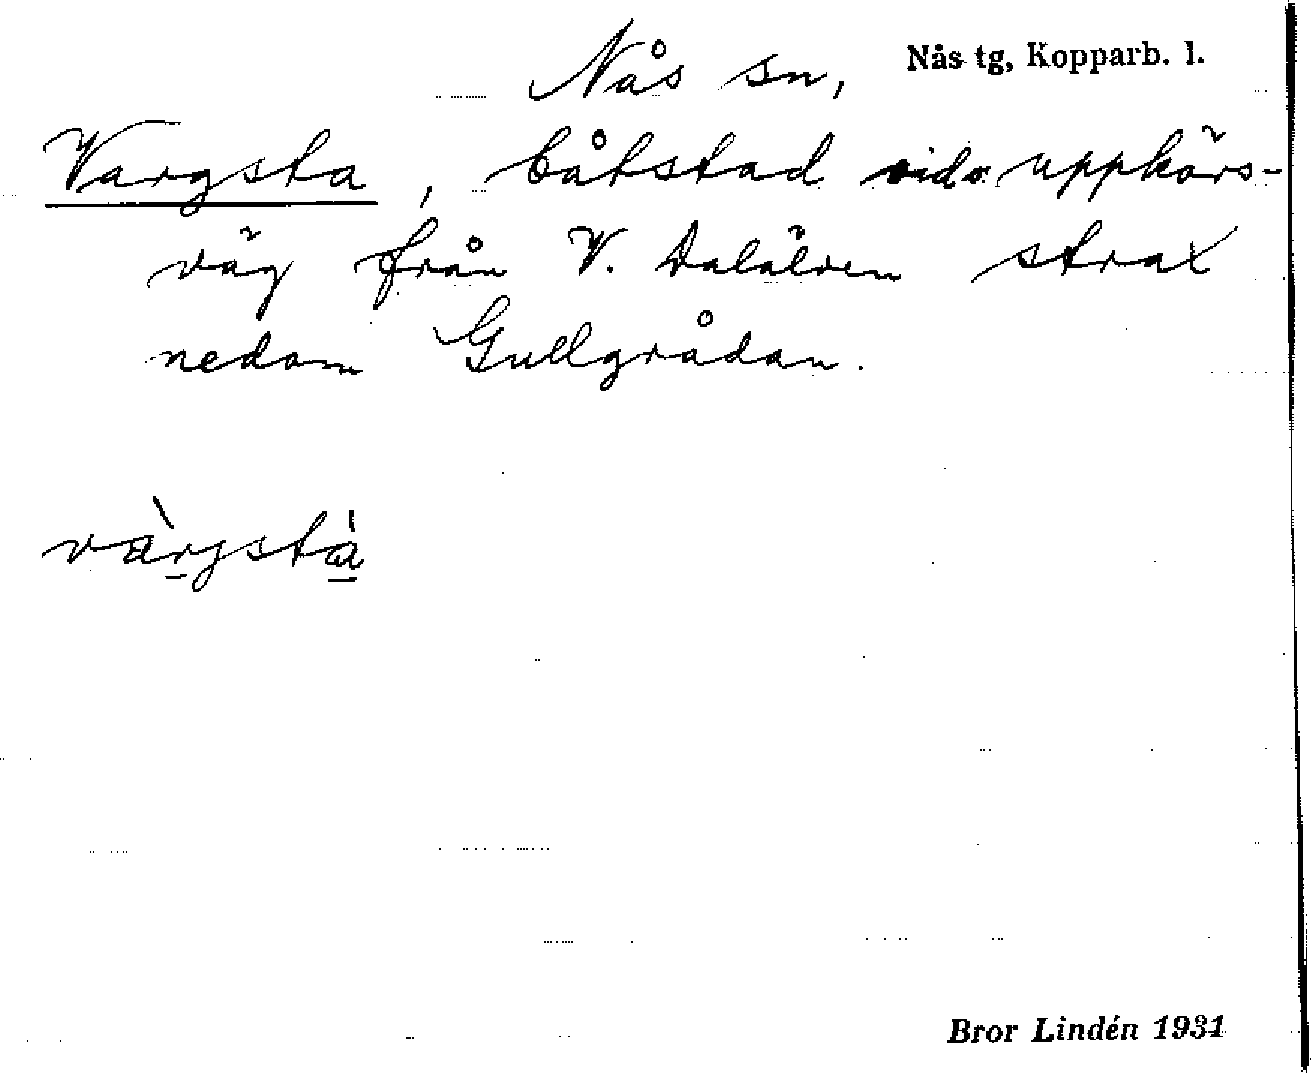 Nås sn, Nås tg, Kopparb. l.
Vargsta, båtstad vid uppkörs-
väg från V. Dalälven strax
nedom Gullgrådan.
vàrgstà
Bror Lindén 1931